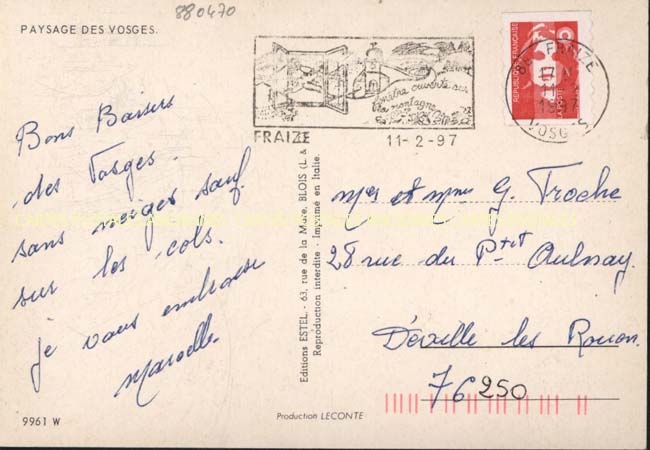 880470
PAYSAGE DES VOSGES.
Bons Baisers
des Vosges.
sans neiges sauf
sur les cols.
je vous embrasse
Marcelle.
9961 W
fenêtre ouverte sur
la montagne
FRAIZE
11-2-97
RÉPUBLIQUE FRANÇAISE
88 FRAIZE
17 H
11-2
1997
VOSGES
Editions ESTEL - 63, rue de la Mare, BLOIS (L. &
Reproduction interdite - Imprimé en Italie.
Production LECONTE
Mr et Mme G. Troche
28 rue du Ptit Aulnay.
Déville les Rouen.
76250